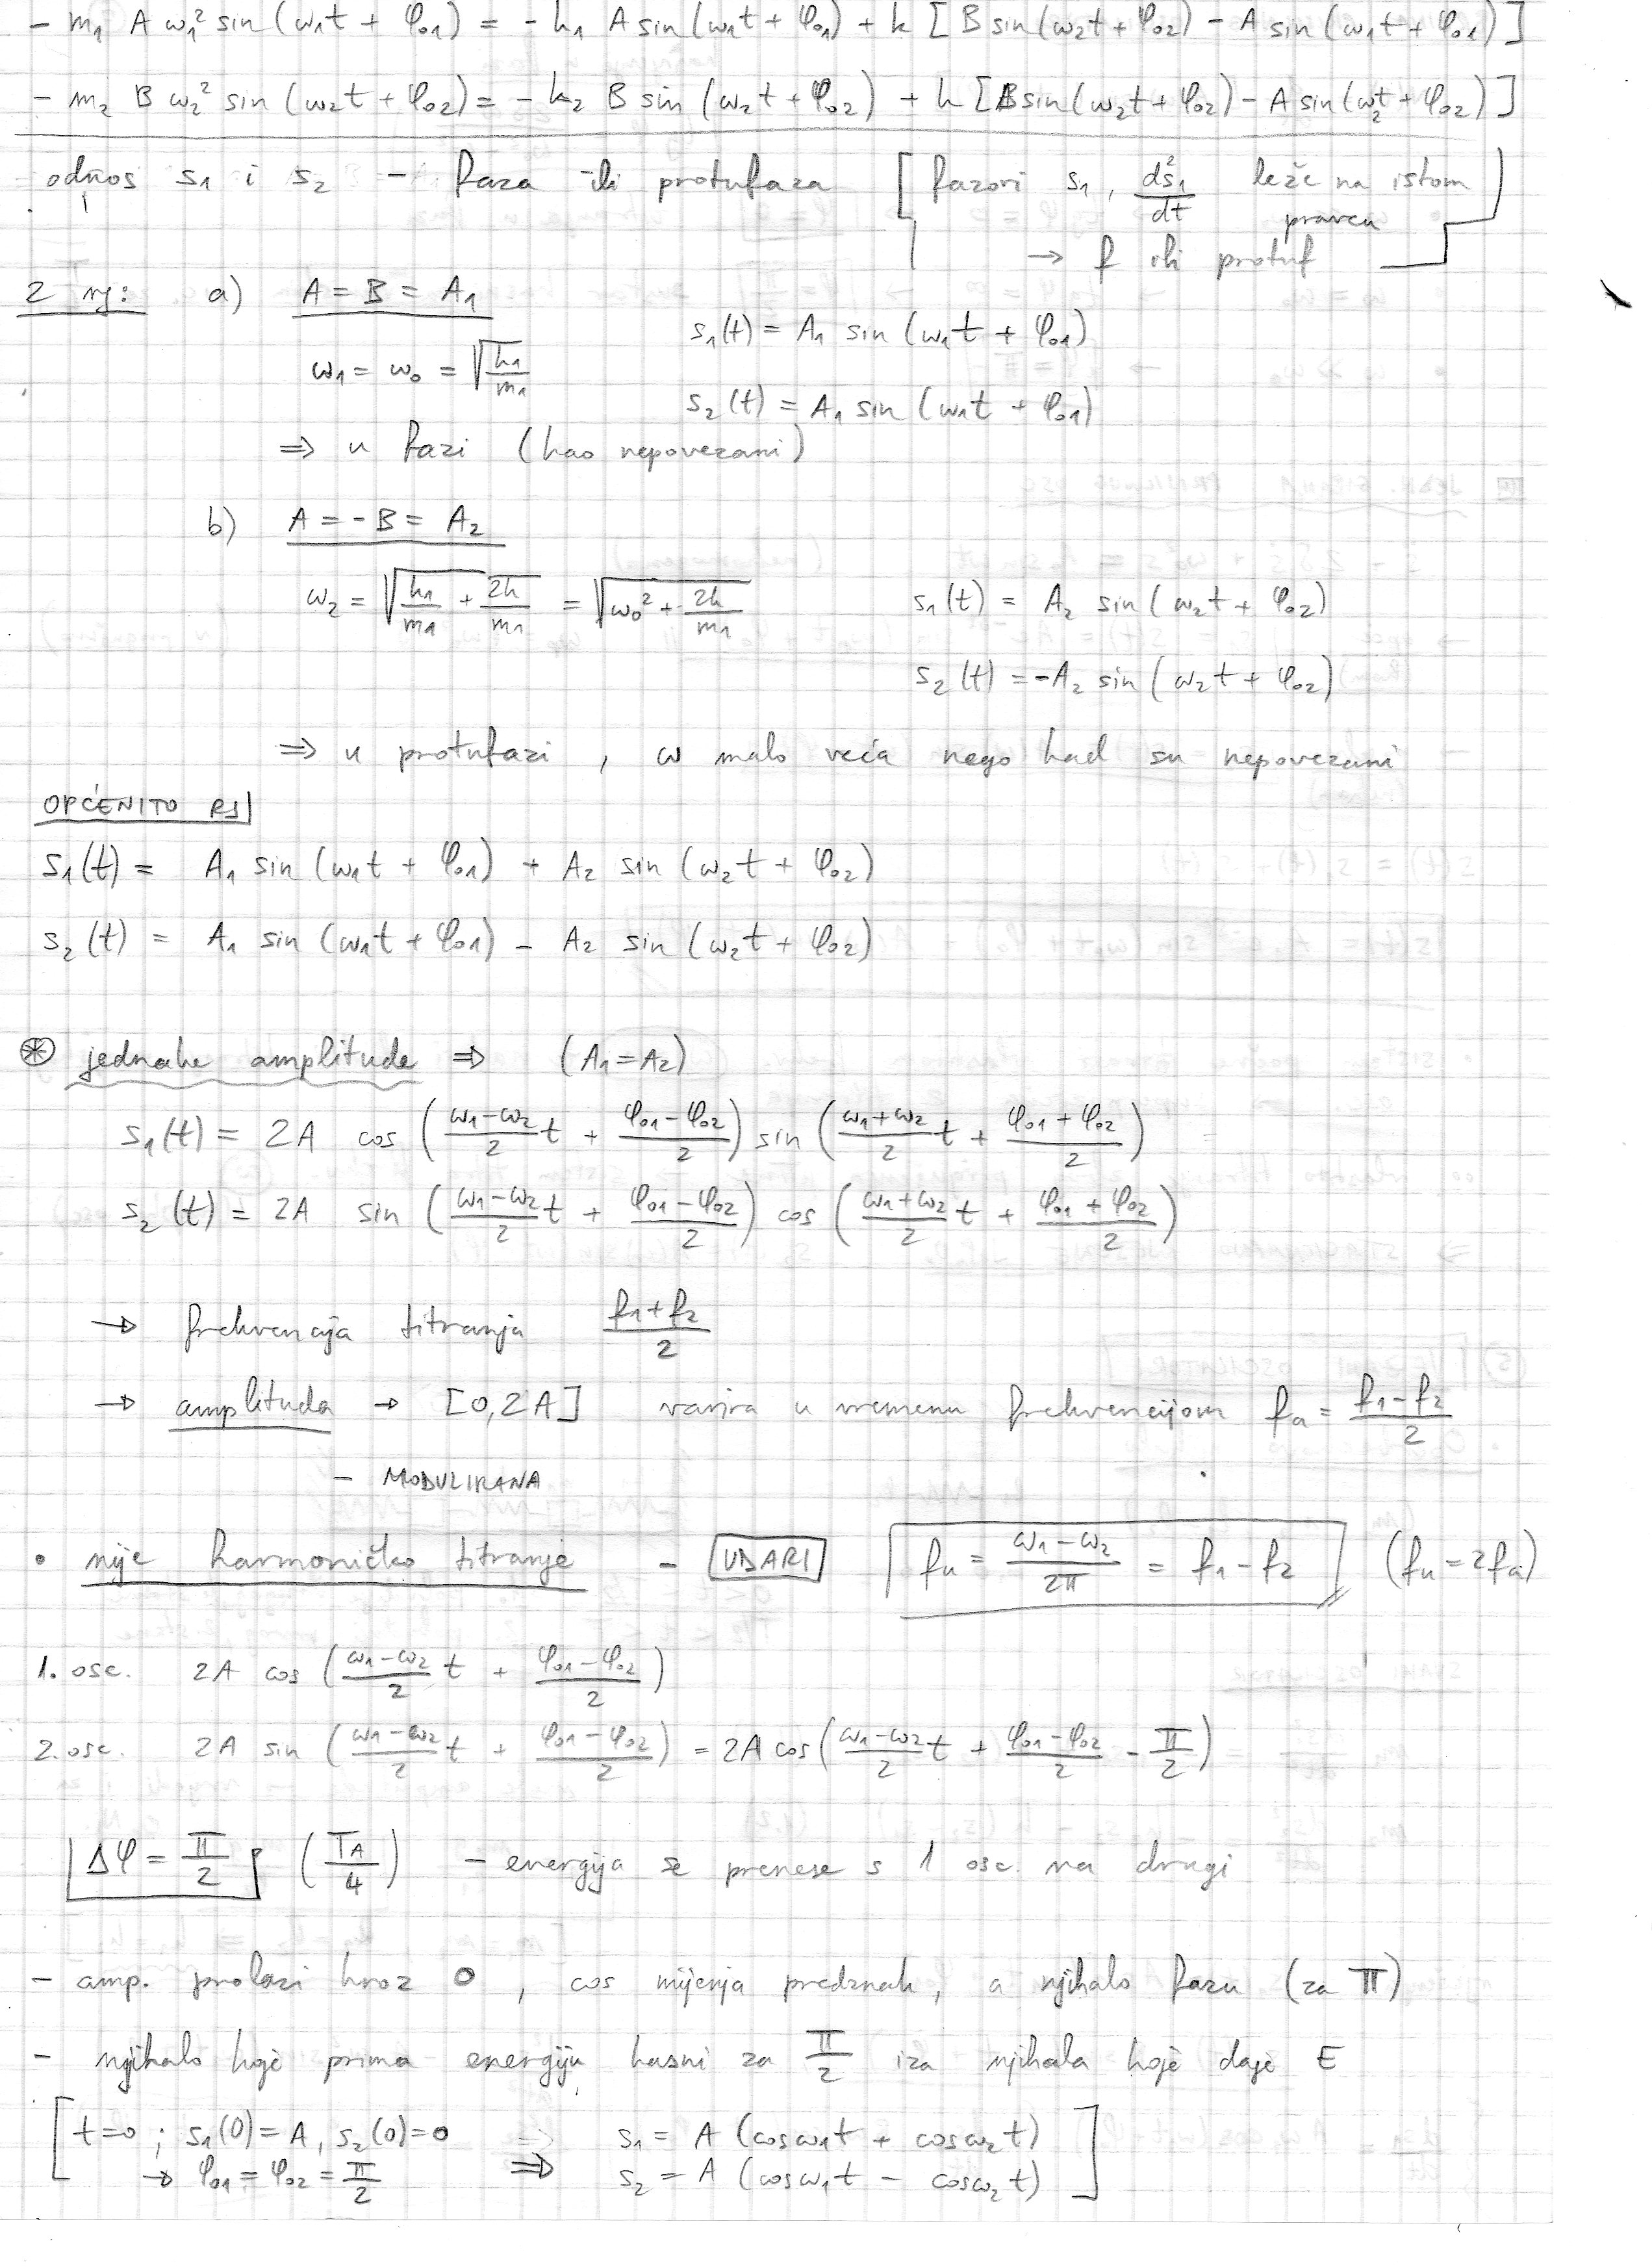 - m₁ A ω₁² sin (ω₁t + φ₀₁) = - k₁ A sin (ω₁t + φ₀₁) + k [B sin(ω₂t + φ₀₂) - A sin (ω₁t + φ₀₁)]
- m₂ B ω₂² sin (ω₂t + φ₀₂) = - k₂ B sin (ω₂t + φ₀₂) + k [B sin(ω₂t + φ₀₂) - A sin (ω₂t + φ₀₂)]
odnos s₁ i s₂ - faza ili protufaza [fazori s₁, d²s₁/dt leže na istom
pravcu
→ f ili protuf]
2 rj: a) A = B = A₁
s₁(t) = A₁ sin (ω₁t + φ₀₁)
ω₁ = ω₀ = √(k₁/m₁)
s₂(t) = A₁ sin (ω₁t + φ₀₁)
⇒ u fazi (kao nepovezani)
b) A = -B = A₂
ω₂ = √(k₁/m₁ + 2k/m₁) = √(ω₀² + 2k/m₁) s₁(t) = A₂ sin (ω₂t + φ₀₂)
s₂(t) = -A₂ sin (ω₂t + φ₀₂)
⇒ u protufazi, ω malo veća nego kad su nepovezani
OPĆENITO RJ
s₁(t) = A₁ sin (ω₁t + φ₀₁) + A₂ sin (ω₂t + φ₀₂)
s₂(t) = A₁ sin (ω₁t + φ₀₁) - A₂ sin (ω₂t + φ₀₂)
⊛ jednake amplitude ⇒ (A₁=A₂)
s₁(t) = 2A cos ((ω₁-ω₂)/2 t + (φ₀₁-φ₀₂)/2) sin ((ω₁+ω₂)/2 t + (φ₀₁+φ₀₂)/2)
s₂(t) = 2A sin ((ω₁-ω₂)/2 t + (φ₀₁-φ₀₂)/2) cos ((ω₁+ω₂)/2 t + (φ₀₁+φ₀₂)/2)
→ frekvencija titranja (f₁+f₂)/2
→ amplituda → [0,2A] varira u vremenu frekvencijom fₐ = (f₁-f₂)/2
- MODULIRANA
• nije harmoničko titranje - UDARI fᵤ = (ω₁-ω₂)/2π = f₁-f₂ (fᵤ=2fₐ)
1. osc. 2A cos ((ω₁-ω₂)/2 t + (φ₀₁-φ₀₂)/2)
2. osc. 2A sin ((ω₁-ω₂)/2 t + (φ₀₁-φ₀₂)/2) = 2A cos ((ω₁-ω₂)/2 t + (φ₀₁-φ₀₂)/2 - π/2)
Δφ = π/2 (T_A/4) - energija se prenese s 1 osc. na drugi
- amp. prolazi kroz 0, cos mijenja predznak, a njihalo fazu (za π)
- njihalo koje prima energiju kasni za π/2 iza njihala koje daje E
[t=0; s₁(0)=A, s₂(0)=0 ⇒ s₁ = A (cosω₁t + cosω₂t)
→ φ₀₁=φ₀₂=π/2 s₂ = A (cosω₁t - cosω₂t)]